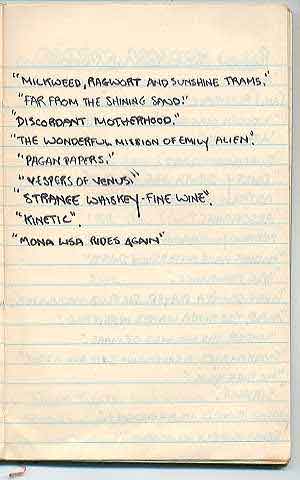 "MILKWEED, RAGWORT AND SUNSHINE TRAMS."
"FAR FROM THE SHINING SAND."
"DISCORDANT MOTHERHOOD."
"THE WONDERFUL MISSION OF EMILY ALIEN".
"PAGAN PAPERS."
"VESPERS OF VENUS."
"STRANGE WHISKEY-FINE WINE".
"KINETIC".
"MONA LISA RIDES AGAIN"